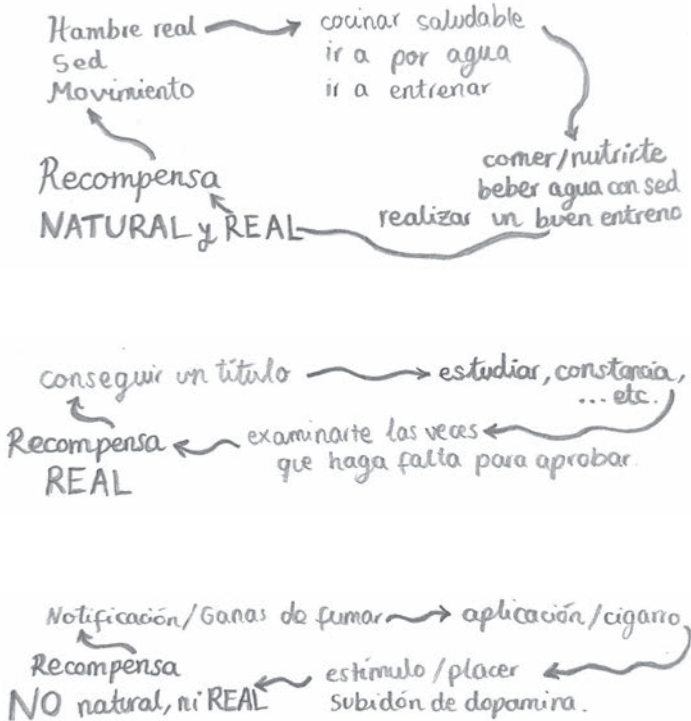 Hambre real
Sed
Movimiento
cocinar saludable
ir a por agua
ir a entrenar
comer/nutrirte
beber agua con sed
realizar un buen entreno
Recompensa
NATURAL y REAL
conseguir un título
estudiar, constancia,
... etc.
examinarte las veces
que haga falta para aprobar.
Recompensa
REAL
Notificación/Ganas de fumar
aplicación/cigarro
estímulo/placer
subidón de dopamina.
Recompensa
NO natural, ni REAL